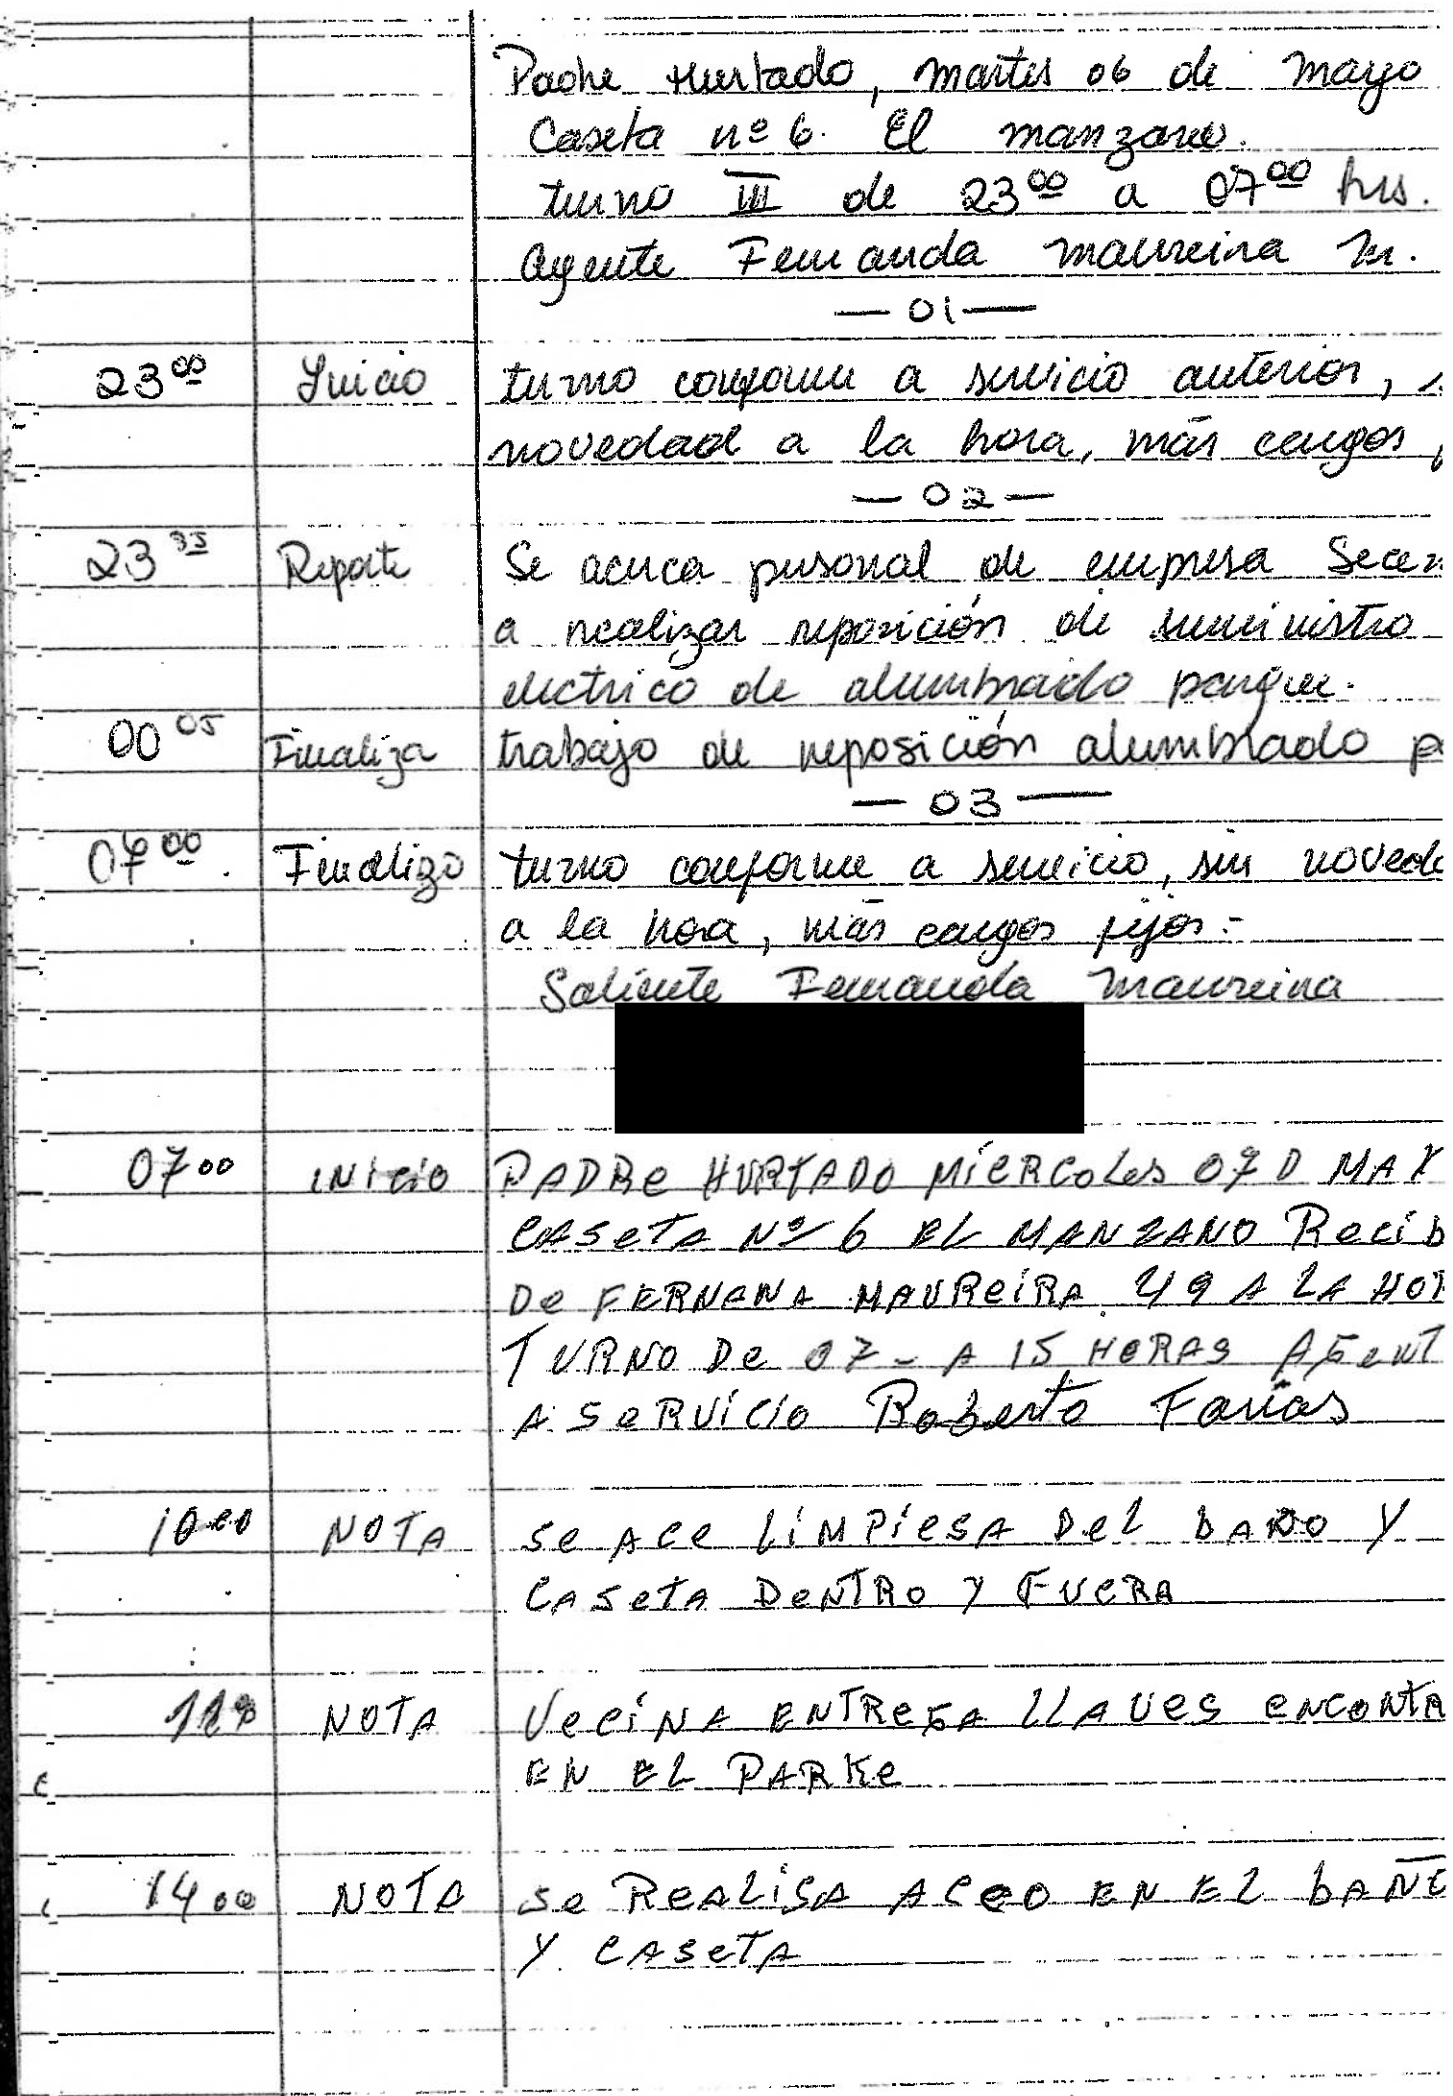 Padre Hurtado, martes 06 de mayo
Caseta nº 6. El manzano.
turno III de 23 00 a 07 00 hrs.
Agente Fernanda Maureira M.
— 01 —
23 00 Inicio turno conforme a servicio anterior,
novedad a la hora, más cargos
— 02 —
23 35 Reporte Se acerca personal de empresa
a realizar reposición de suministro
electrico de alumbrado parque.
00 05 Finaliza trabajo de reposición alumbrado
— 03 —
07 00. Finalizo turno conforme a servicio, sin novede
a la hora, más cargos fijos.-
Saliente Fernanda Maureira
07 00 INICIO PADRE HURTADO MIERCOLES 07 D MAY
CASETA Nº 6 EL MANZANO Recib
De FERNANA MAUREIRA. A LA HOR
TURNO De 07 - A 15 HORAS AGENT
A SERVICIO Roberto Farias
10 00 NOTA Se ACE LIMPIESA DEL BAÑO Y
CASETA DENTRO Y FUERA
NOTA VECINA ENTREGA LLAVES ENCONTR
EN EL PARKE
14 00 NOTA Se REALISA ACEO EN EL BAÑO
Y CASETA